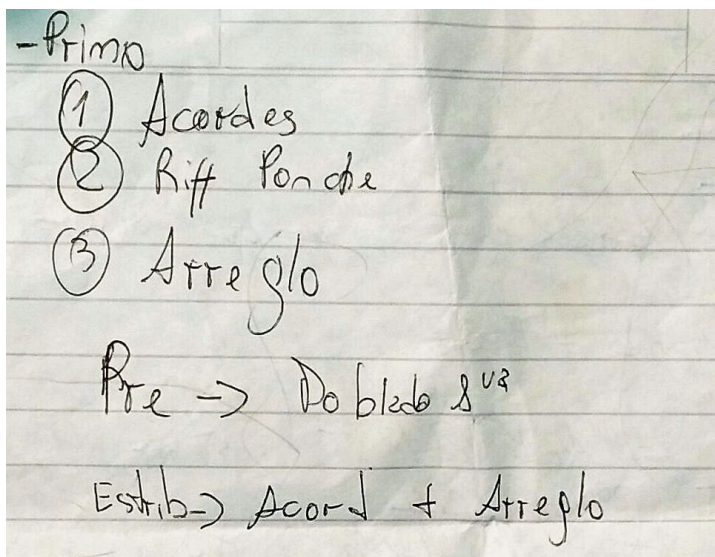 -Primo
1 Acordes
2 Riff Ponche
3 Arreglo
Pre -> Doblado 8va
Estrib-> Acord + Arreglo